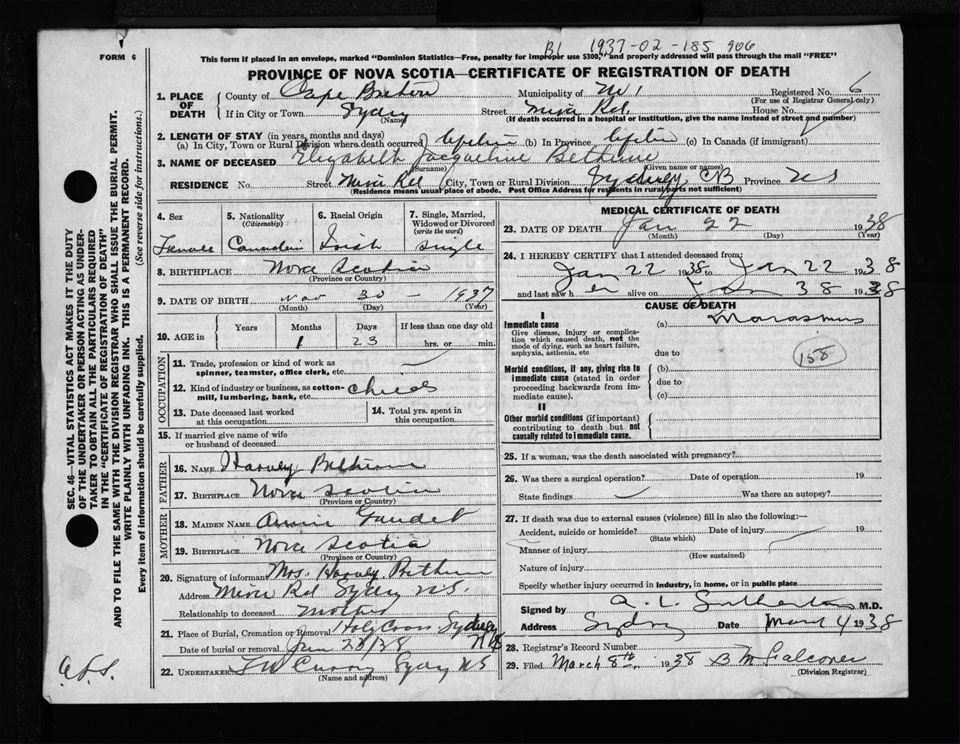 B1 1937-02-185 906
FORM 6
This form if placed in an envelope, marked "Dominion Statistics—Free, penalty for improper use $300," and properly addressed will pass through the mail "FREE"
PROVINCE OF NOVA SCOTIA—CERTIFICATE OF REGISTRATION OF DEATH
1. PLACE OF DEATH
County of Cape Breton Municipality of Registered No. 6
(For use of Registrar General only)
If in City or Town Sydney Street Mira Rd. House No.
(Name) (If death occurred in a hospital or institution, give the name instead of street and number)
2. LENGTH OF STAY (in years, months and days)
(a) In City, Town or Rural Division where death occurred lifetime (b) In Province lifetime (c) In Canada (if immigrant)
3. NAME OF DECEASED Elizabeth Jacqueline Bethune
(Surname) (Given name or names)
RESIDENCE No. Street Mira Rd City, Town or Rural Division Sydney CB Province NS
(Residence means usual place of abode. Post Office Address for residents in rural parts not sufficient)
4. Sex
Female
5. Nationality
(Citizenship)
Canadian
6. Racial Origin
Irish
7. Single, Married, Widowed or Divorced
(write the word)
Single
8. BIRTHPLACE Nova Scotia
(Province or Country)
9. DATE OF BIRTH Nov 30 - 1937
(Month) (Day) (Year)
10. AGE in Years Months Days If less than one day old
1 23 hrs. or min.
OCCUPATION
11. Trade, profession or kind of work as spinner, teamster, office clerk, etc.
12. Kind of industry or business, as cotton-mill, lumbering, bank, etc. Child
13. Date deceased last worked at this occupation
14. Total yrs. spent in this occupation
15. If married give name of wife or husband of deceased
FATHER
16. NAME Harvey Bethune
17. BIRTHPLACE Nova Scotia
(Province or Country)
MOTHER
18. MAIDEN NAME Annie Gaudet
19. BIRTHPLACE Nova Scotia
(Province or Country)
20. Signature of informant Mrs. Harvey Bethune
Address Mira Rd Sydney N.S.
Relationship to deceased Mother
21. Place of Burial, Cremation or Removal Holy Cross Sydney
Date of burial or removal Jan 23/38
22. UNDERTAKER Curry Sydney NS
(Name and address)
MEDICAL CERTIFICATE OF DEATH
23. DATE OF DEATH Jan 22 1938
(Month) (Day) (Year)
24. I HEREBY CERTIFY that I attended deceased from:
Jan 22 1938 to Jan 22 1938
and last saw her alive on Jan 38 1938
CAUSE OF DEATH
I
Immediate cause (a) Marasmus
Give disease, injury or complication which caused death, not the mode of dying, such as heart failure, asphyxia, asthenia, etc
due to 158
Morbid conditions, if any, giving rise to immediate cause (stated in order proceeding backwards from immediate cause).
(b)
due to
(c)
II
Other morbid conditions (if important) contributing to death but not causally related to immediate cause.
25. If a woman, was the death associated with pregnancy?
26. Was there a surgical operation? Date of operation 19
State findings Was there an autopsy?
27. If death was due to external causes (violence) fill in also the following:—
Accident, suicide or homicide? Date of injury 19
(State which)
Manner of injury
(How sustained)
Nature of injury
Specify whether injury occurred in industry, in home, or in public place
Signed by A. L. Sutherland M.D.
Address Sydney Date March 4 1938
28. Registrar's Record Number
29. Filed March 8th. 1938 B M Falconer
(Division Registrar)
SEC. 46—VITAL STATISTICS ACT MAKES IT THE DUTY
OF THE UNDERTAKER OR PERSON ACTING AS UNDER-
TAKER TO OBTAIN ALL THE PARTICULARS REQUIRED
IN THE "CERTIFICATE OF REGISTRATION OF DEATH"
AND TO FILE THE SAME WITH THE DIVISION REGISTRAR WHO SHALL ISSUE THE BURIAL PERMIT.
WRITE PLAINLY WITH UNFADING INK. THIS IS A PERMANENT RECORD.
Every item of information should be carefully supplied. (See reverse side for instructions.)